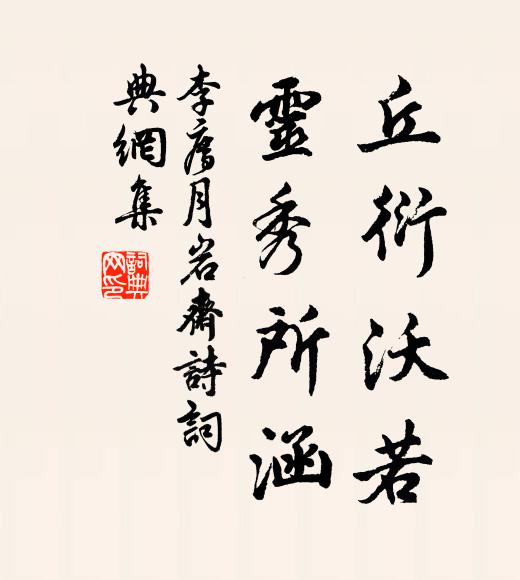 丘衍沃若
靈秀所涵
李廌月岩齋詩詞
典網集
詞典网印